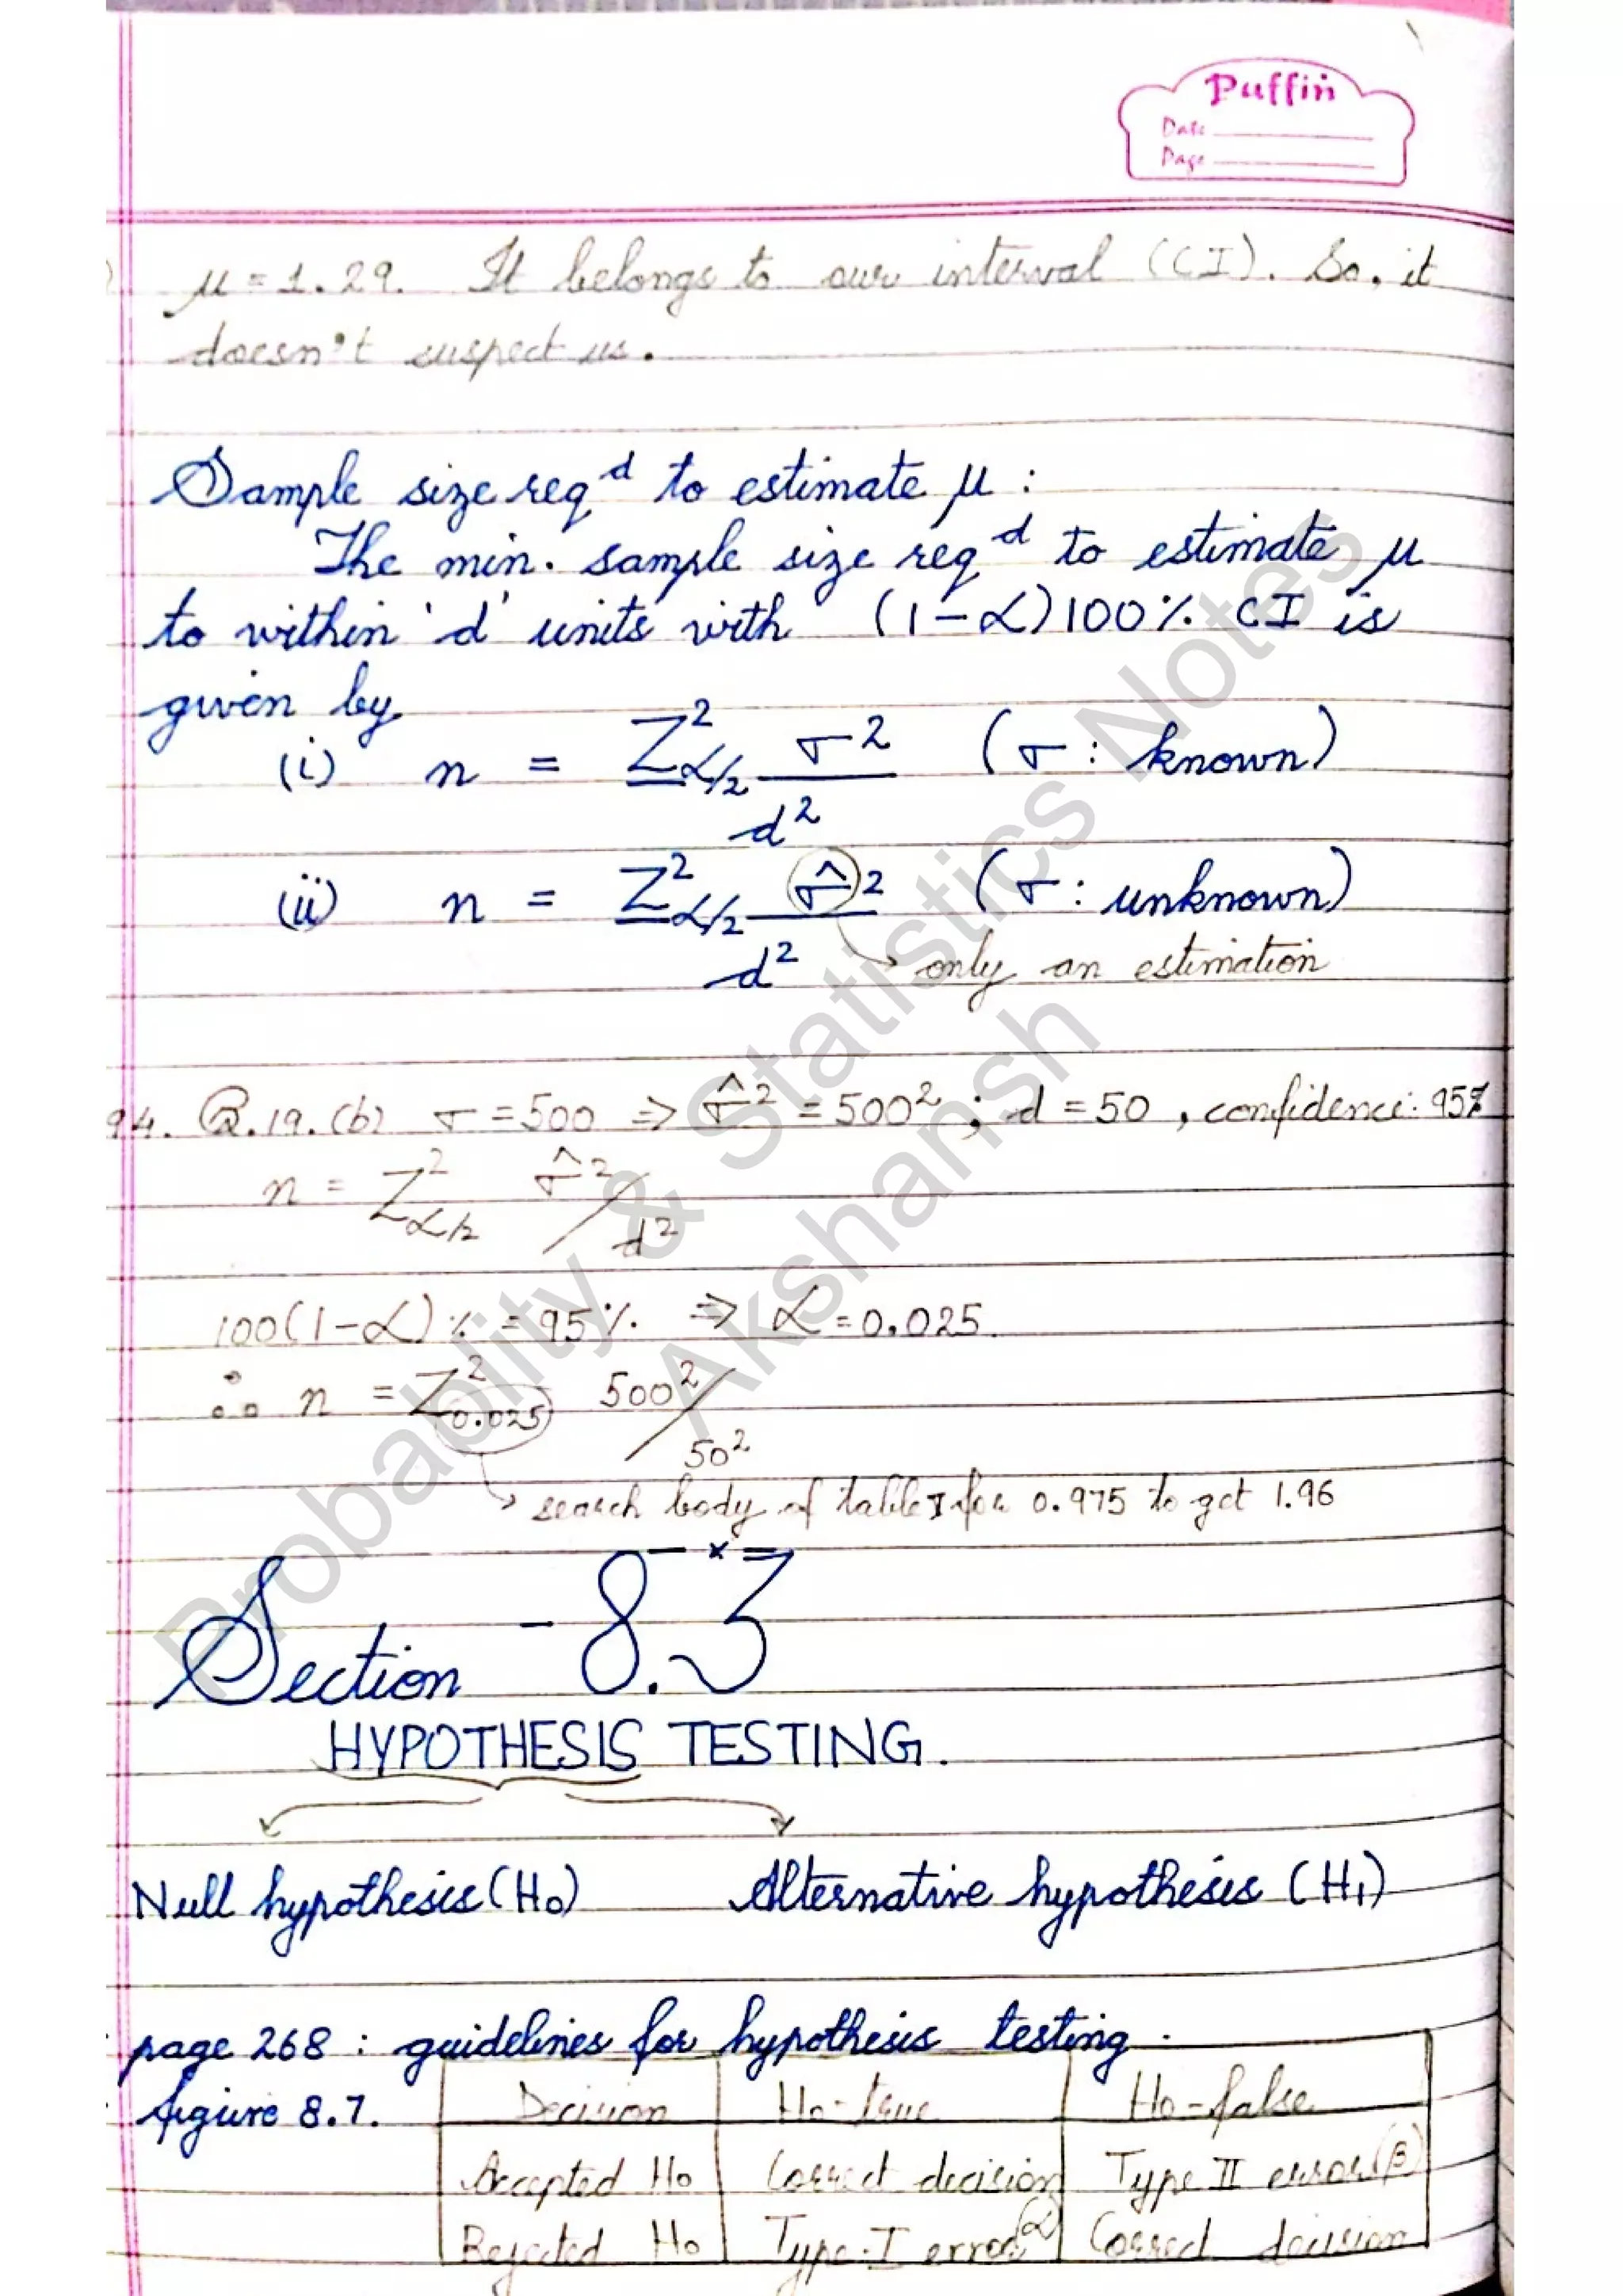 Puffin
Date
Page
μ = 1.29. It belongs to our interval (CI). So, it
doesn't suspect us.
Sample size reqᵈ to estimate μ :
The min. sample size reqᵈ to estimate μ
to within 'd' units with (1-α)100% CI is
given by
(i) n = Z²α/2 σ² / d² (σ : known)
(ii) n = Z²α/2 σ̂² / d² (σ : unknown)
→ only an estimation
94. Q.19.(b) σ = 500 => σ̂² = 500² ; d = 50 , confidence: 95%
n = Z²α/2 σ̂² / d²
100(1-α)% = 95% => α = 0.025.
∴ n = Z²0.025 500² / 50²
→ search body of table I for 0.975 to get 1.96
— x —
Section - 8.3
HYPOTHESIS TESTING.
Null hypothesis (H₀) Alternative hypothesis (H₁)
page 268 : guidelines for hypothesis testing.
figure 8.7.
Decision H₀-true H₀-false
Accepted H₀ Correct decision Type II error (β)
Rejected H₀ Type-I error (α) Correct decision
Probability & Statistics Notes
Akshansh